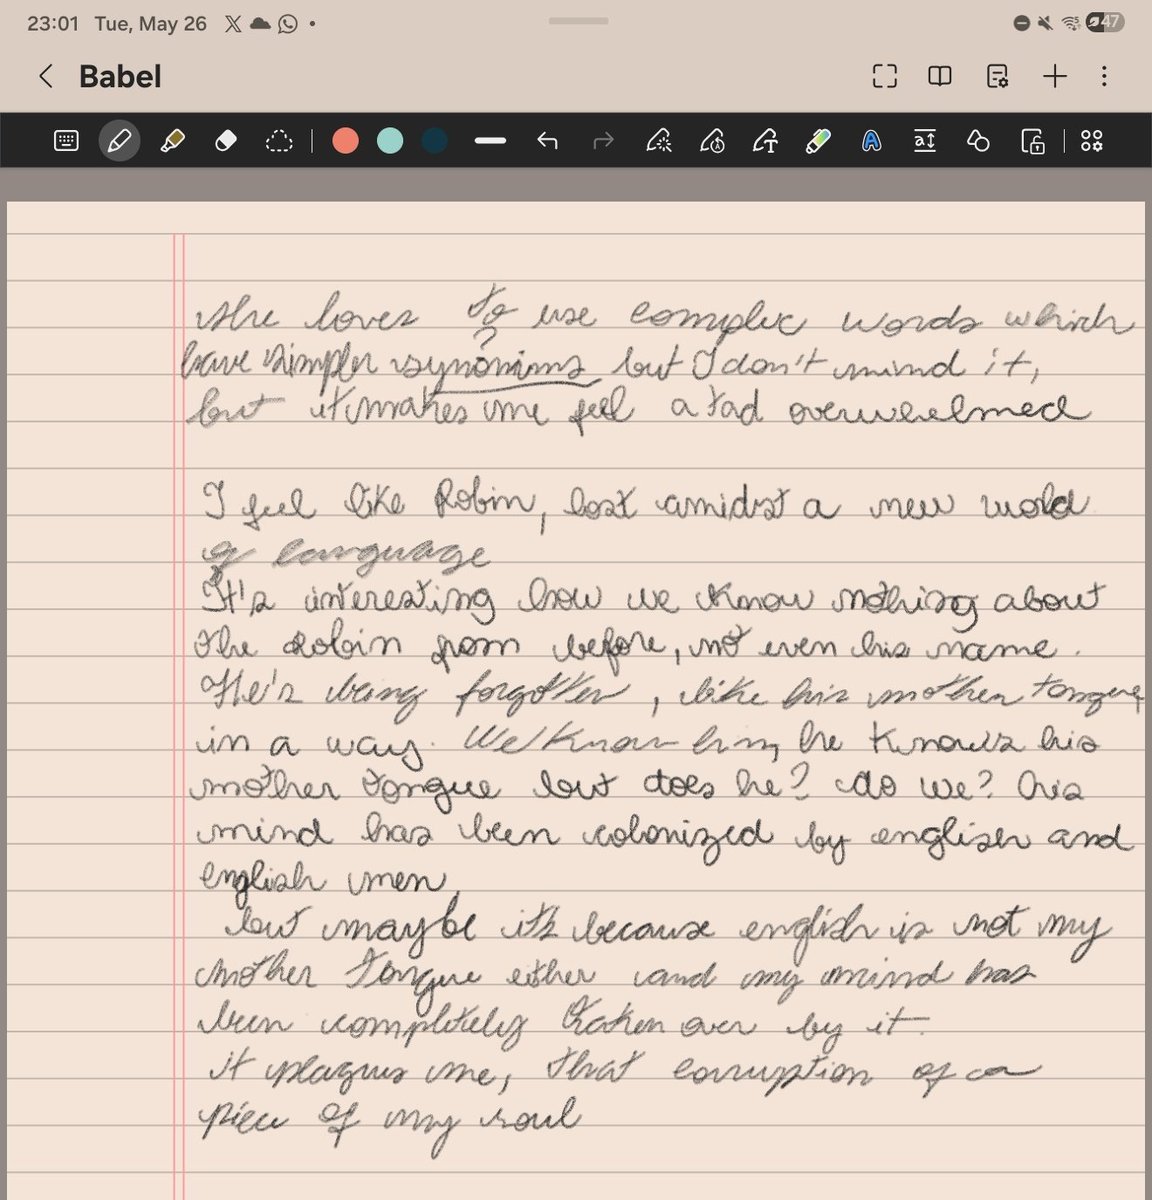 23:01 Tue, May 26
47
Babel
she loves to use complex words which
?
have simpler synonims but I don't mind it,
but it makes me feel a tad overwhelmed
I feel like Robin, lost amidst a new wold
of language
It's interesting how we know nothing about
the Robin from before, not even his name.
He's being forgotten, like his mother tongue,
in a way. We know him, he knows his
mother tongue but does he? do we? his
mind has been colonized by english and
english men,
but maybe it's because english is not my
mother tongue either and my mind has
been completely taken over by it.
it plagues me, that corruption of a
piece of my soul